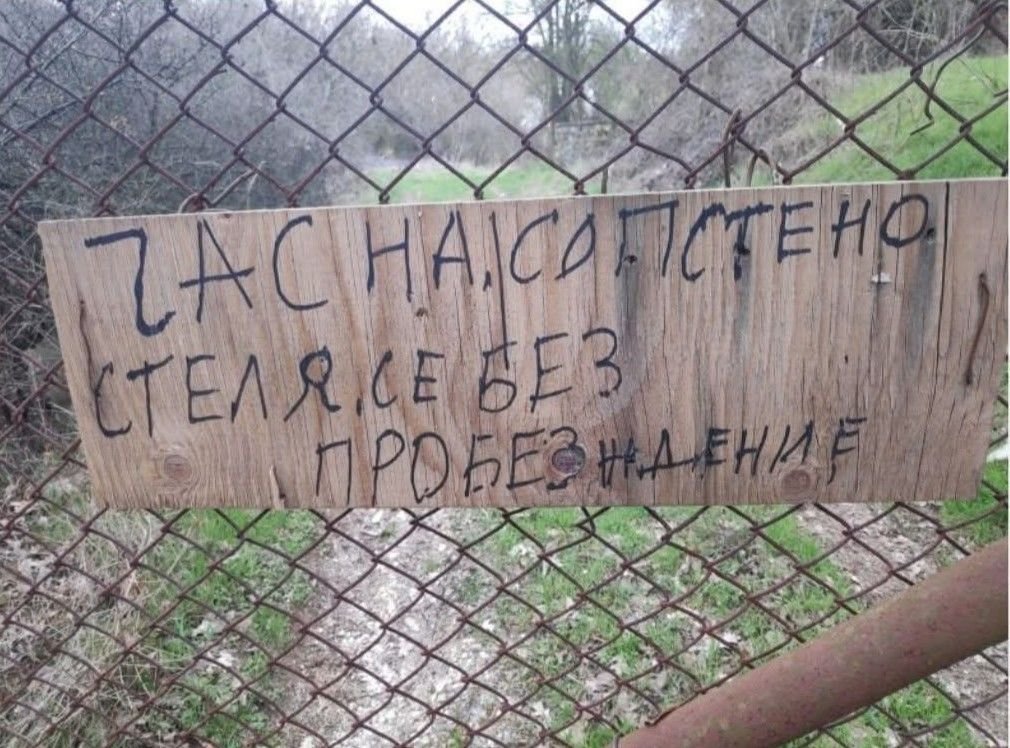 ЧАС НА. СОПСТЕНО
СТЕЛЯ. СЕ БЕЗ
ПРОБЕЗЖДЕНИЕ